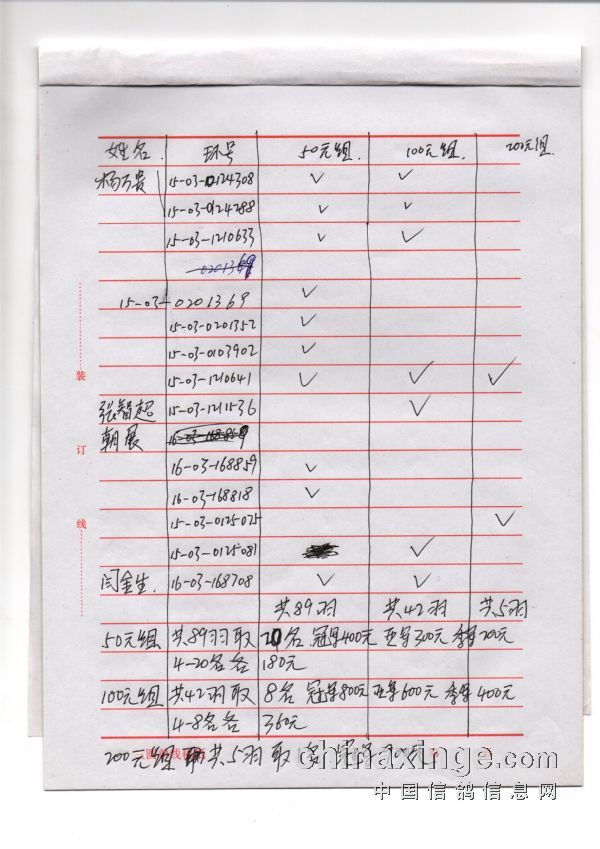 姓名 环号 50元组. 100元组. 200元组.
杨万贵 15-03-0124308 ✓ ✓
15-03-0124288 ✓ ✓
15-03-1210633 ✓ ✓
15-03-0201369 ✓
15-03-0201352 ✓
15-03-0103902 ✓
15-03-1210641 ✓ ✓ ✓
张智超 15-03-1211536 ✓
朝展
16-03-168859 ✓
16-03-168818 ✓
15-03-0125025 ✓
15-03-0125081 ✓
闫金生. 16-03-168708 ✓ ✓
共89羽 共42羽 共5羽
50元组 共89羽取 20名 冠军400元 亚军300元 季军200元
4-20名各 180元
100元组 共42羽取 8名 冠军800元 亚军600元 季军400元
4-8名各 360元
200元组 共5羽 取
装
订
线
chinaxinge.com
中国信鸽信息网